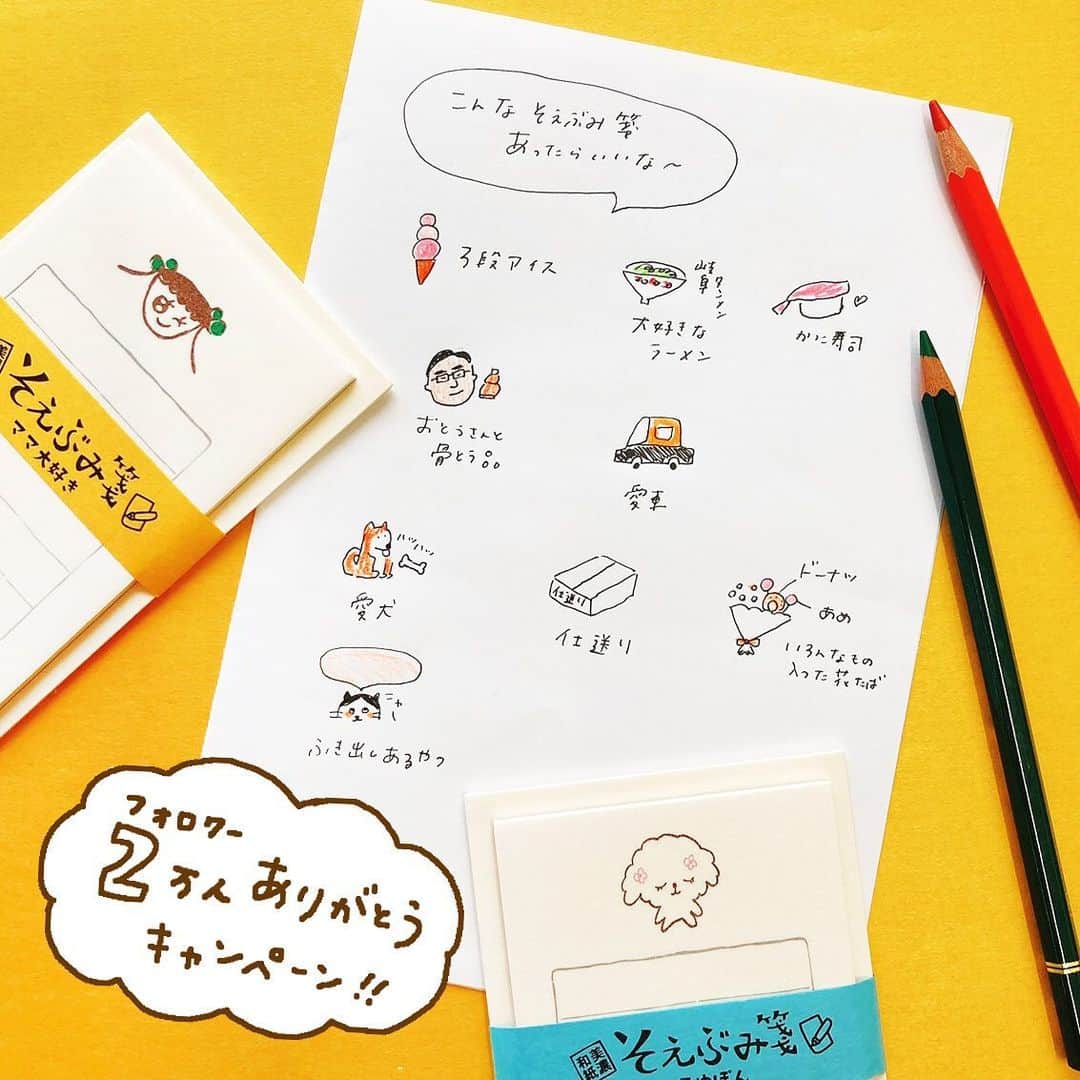 こんな そえぶみ箋
あったらいいな〜
3段アイス
岐阜タンメン
大好きな
ラーメン
かに寿司
おとうさんと
骨とう品
愛車
ハッハッ
愛犬
仕送り
仕送り
ドーナツ
あめ
いろんなもの
入った花たば
ニャー
ふき出しあるやつ
美濃
そえぶみ箋
ママ大好き
フォロワー
2万人 ありがとう
キャンペーン!!
美濃和紙
そえぶみ箋